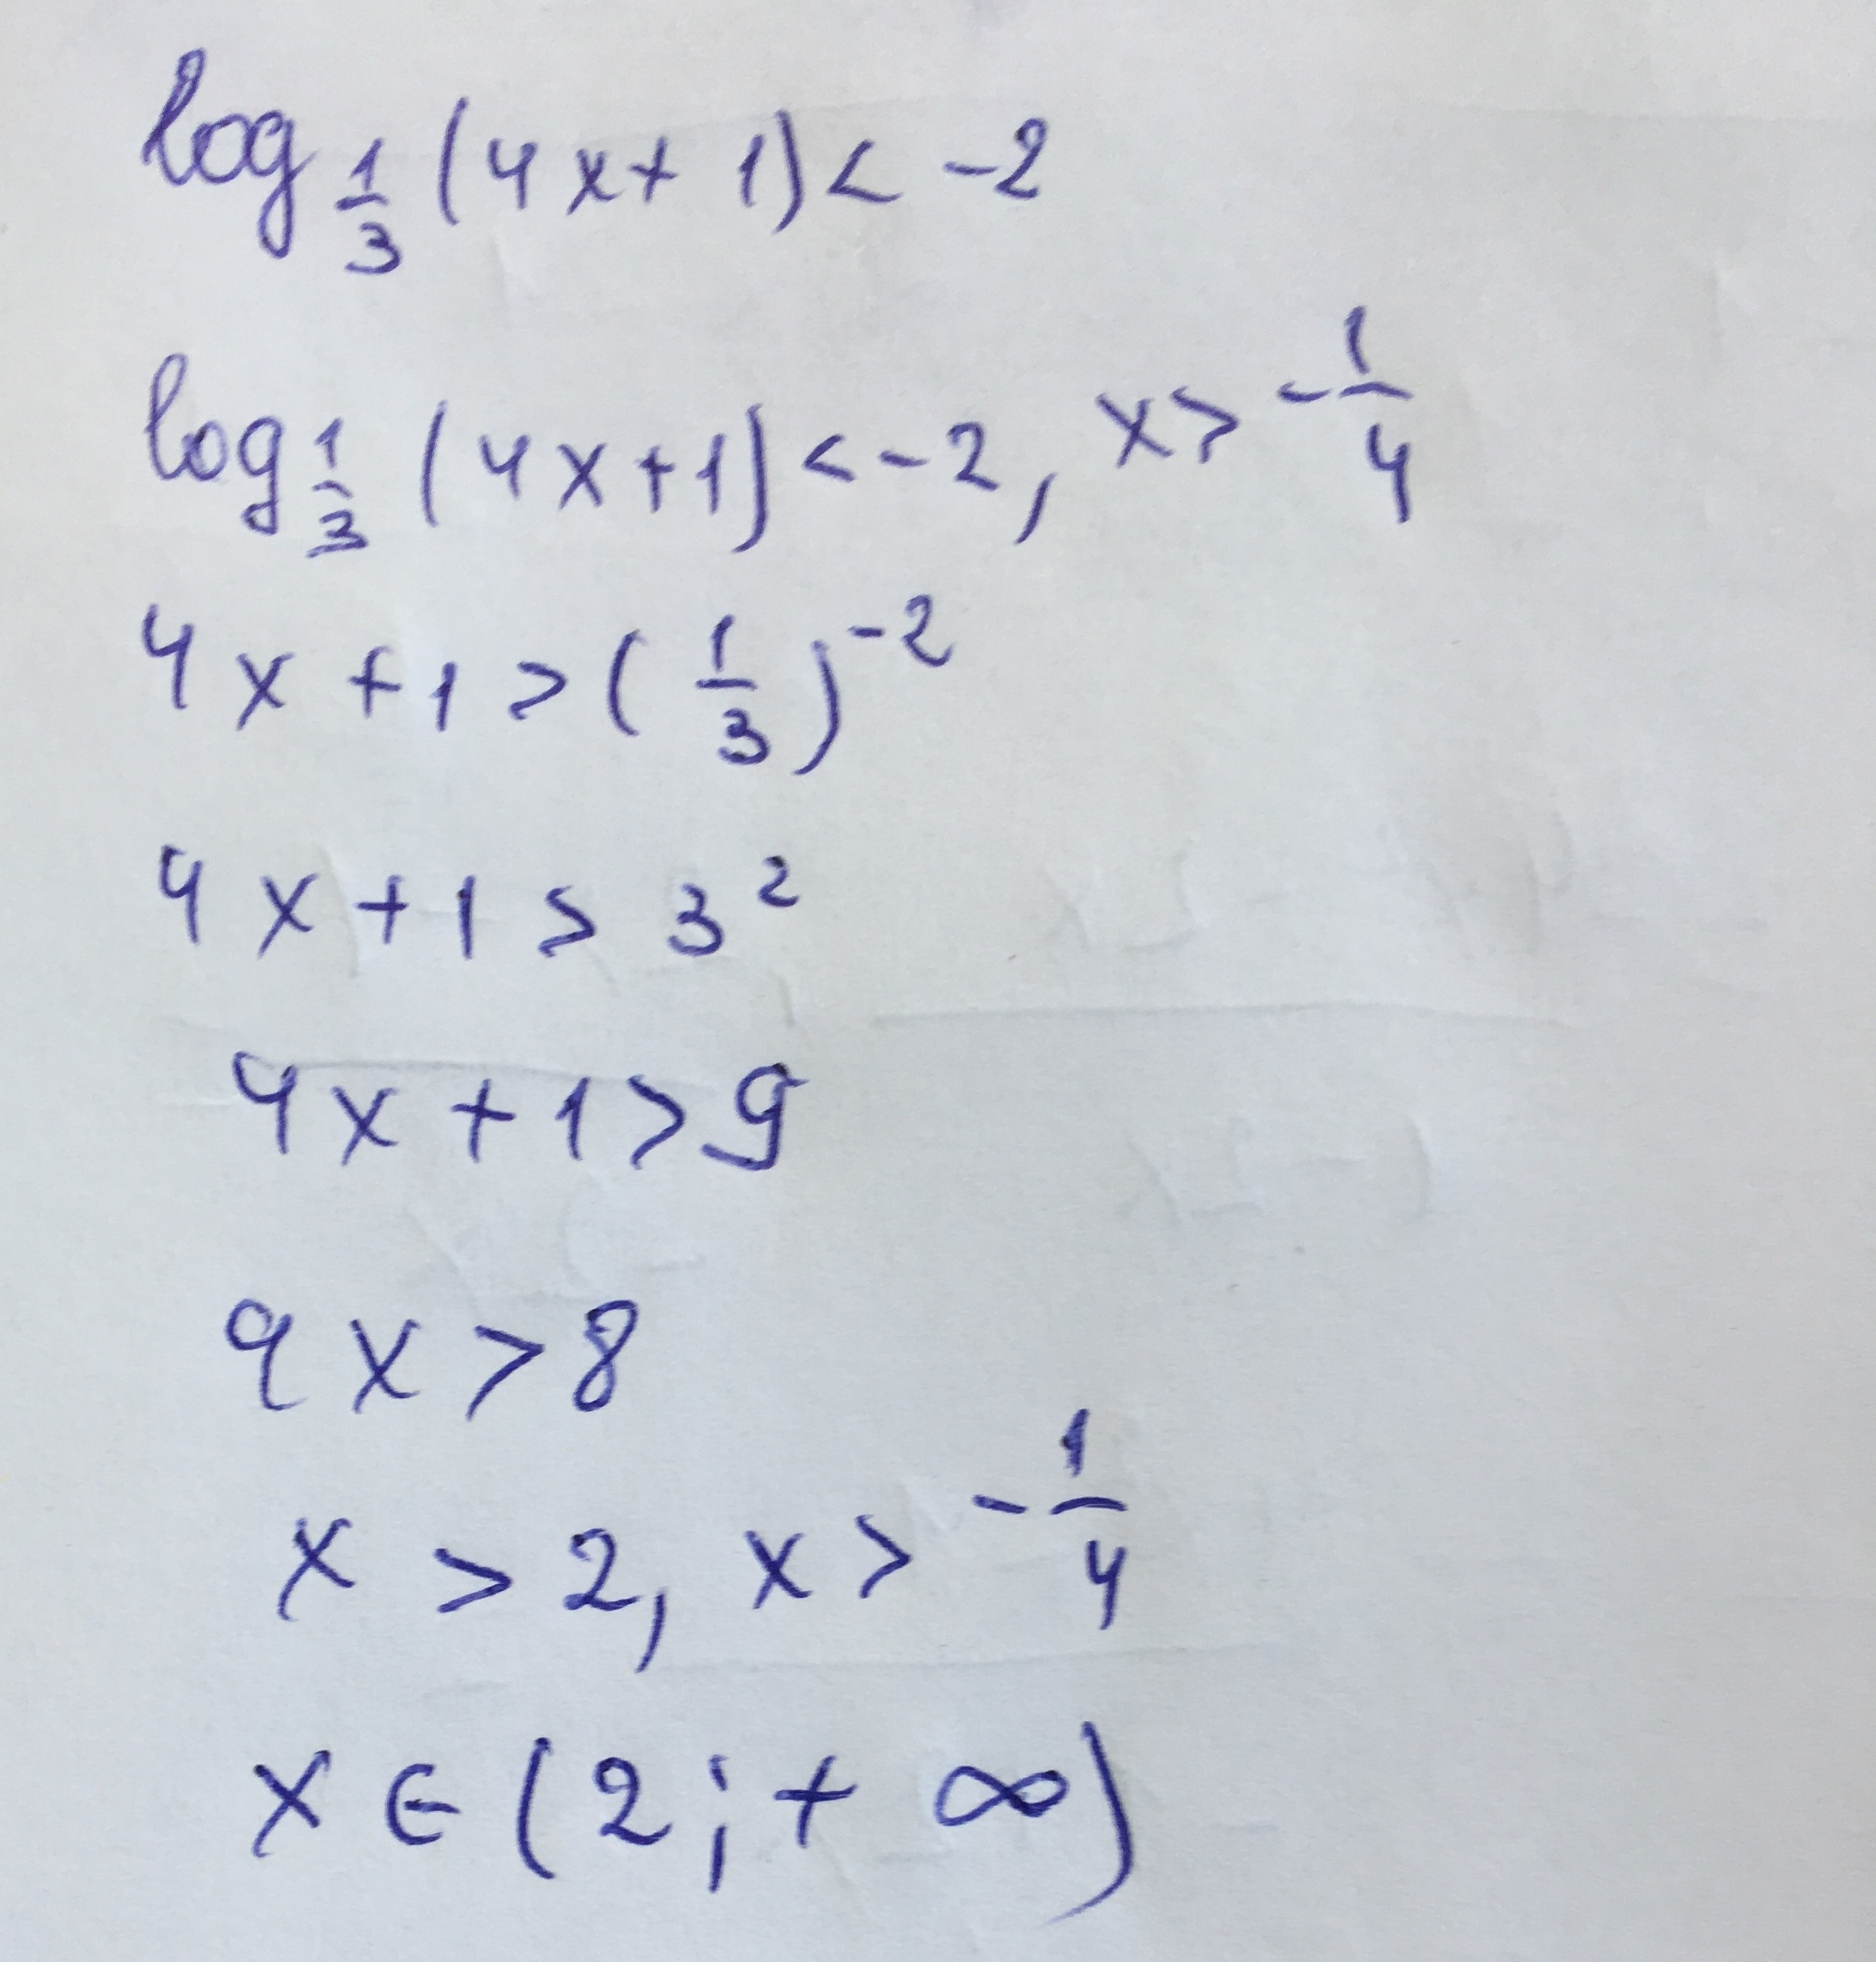 log_{1/3} (4x + 1) < -2
log_{1/3} (4x + 1) < -2, x > -1/4
4x + 1 > (1/3)^{-2}
4x + 1 > 3^2
4x + 1 > 9
4x > 8
x > 2, x > -1/4
x ∈ (2; + ∞)